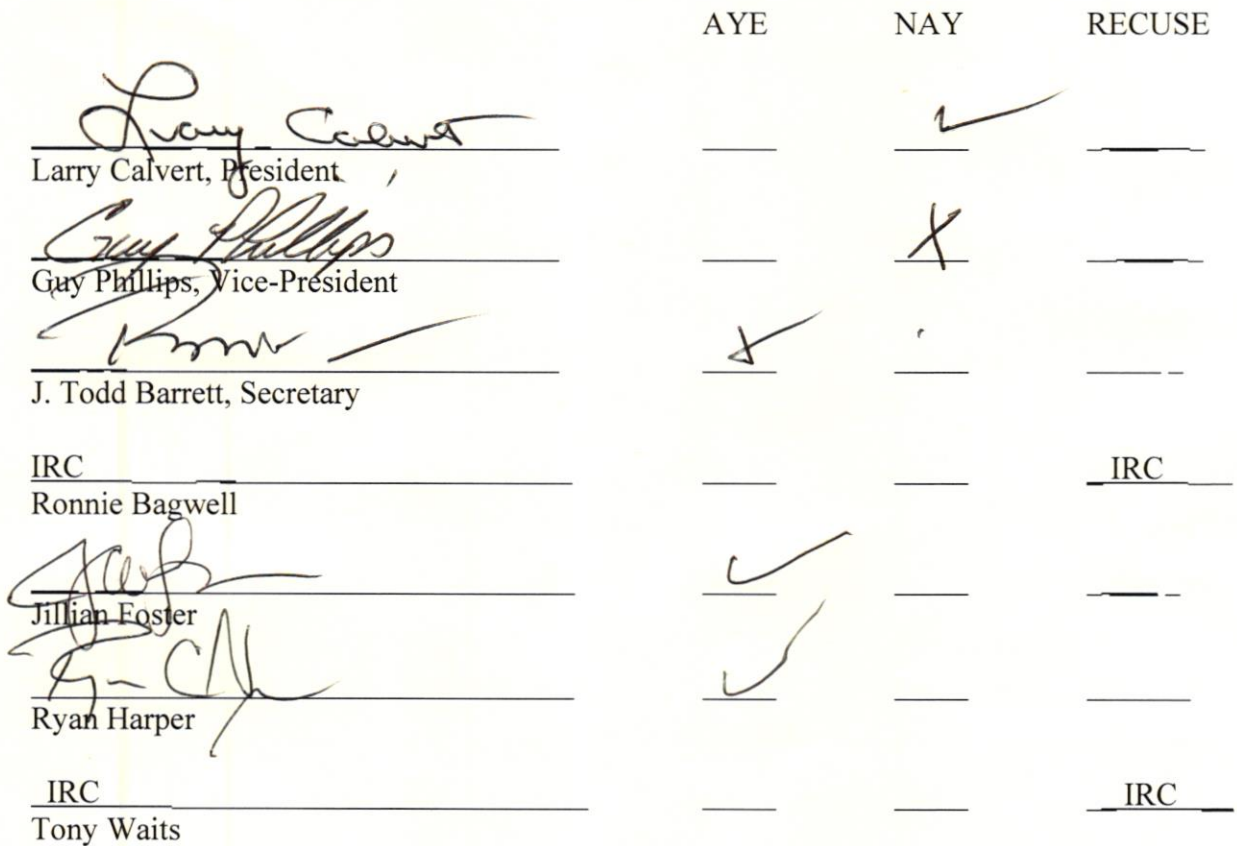 AYE NAY RECUSE
Larry Calvert
Larry Calvert, President
Guy Phillips
Guy Phillips, Vice-President
J. Todd Barrett, Secretary
IRC IRC
Ronnie Bagwell
Jillian Foster
Ryan Harper
IRC IRC
Tony Waits